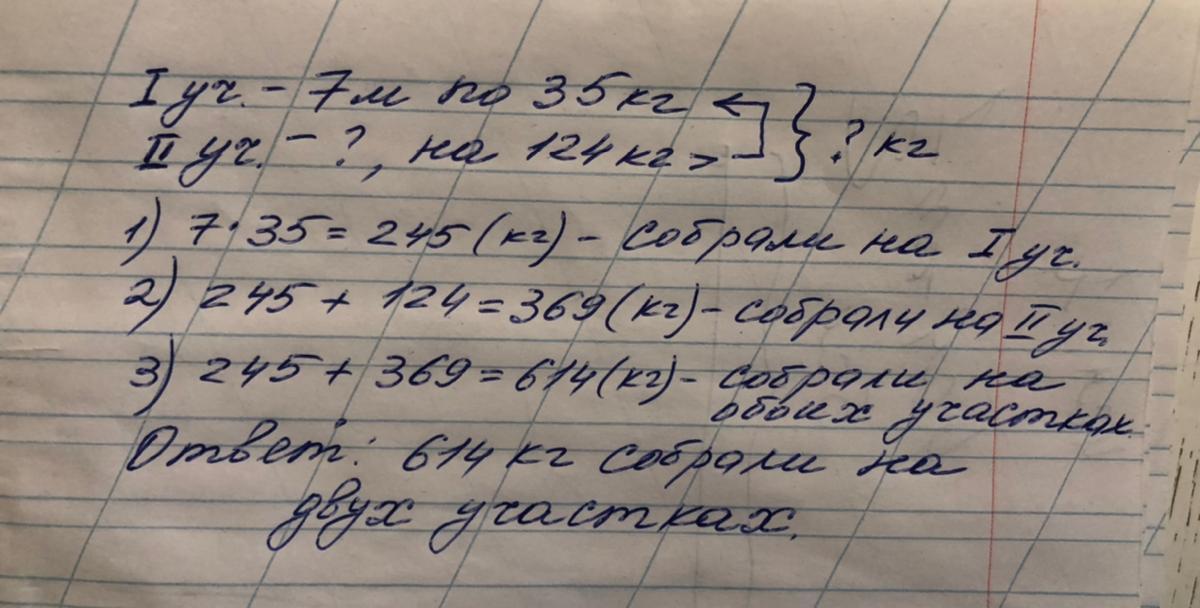 I уч. - 7м по 35 кг
II уч. - ?, на 124 кг > } ? кг
1) 7 · 35 = 245 (кг) - собрали на I уч.
2) 245 + 124 = 369 (кг) - собрали на II уч.
3) 245 + 369 = 614 (кг) - собрали на
обоих участках.
Ответ: 614 кг собрали на
двух участках.